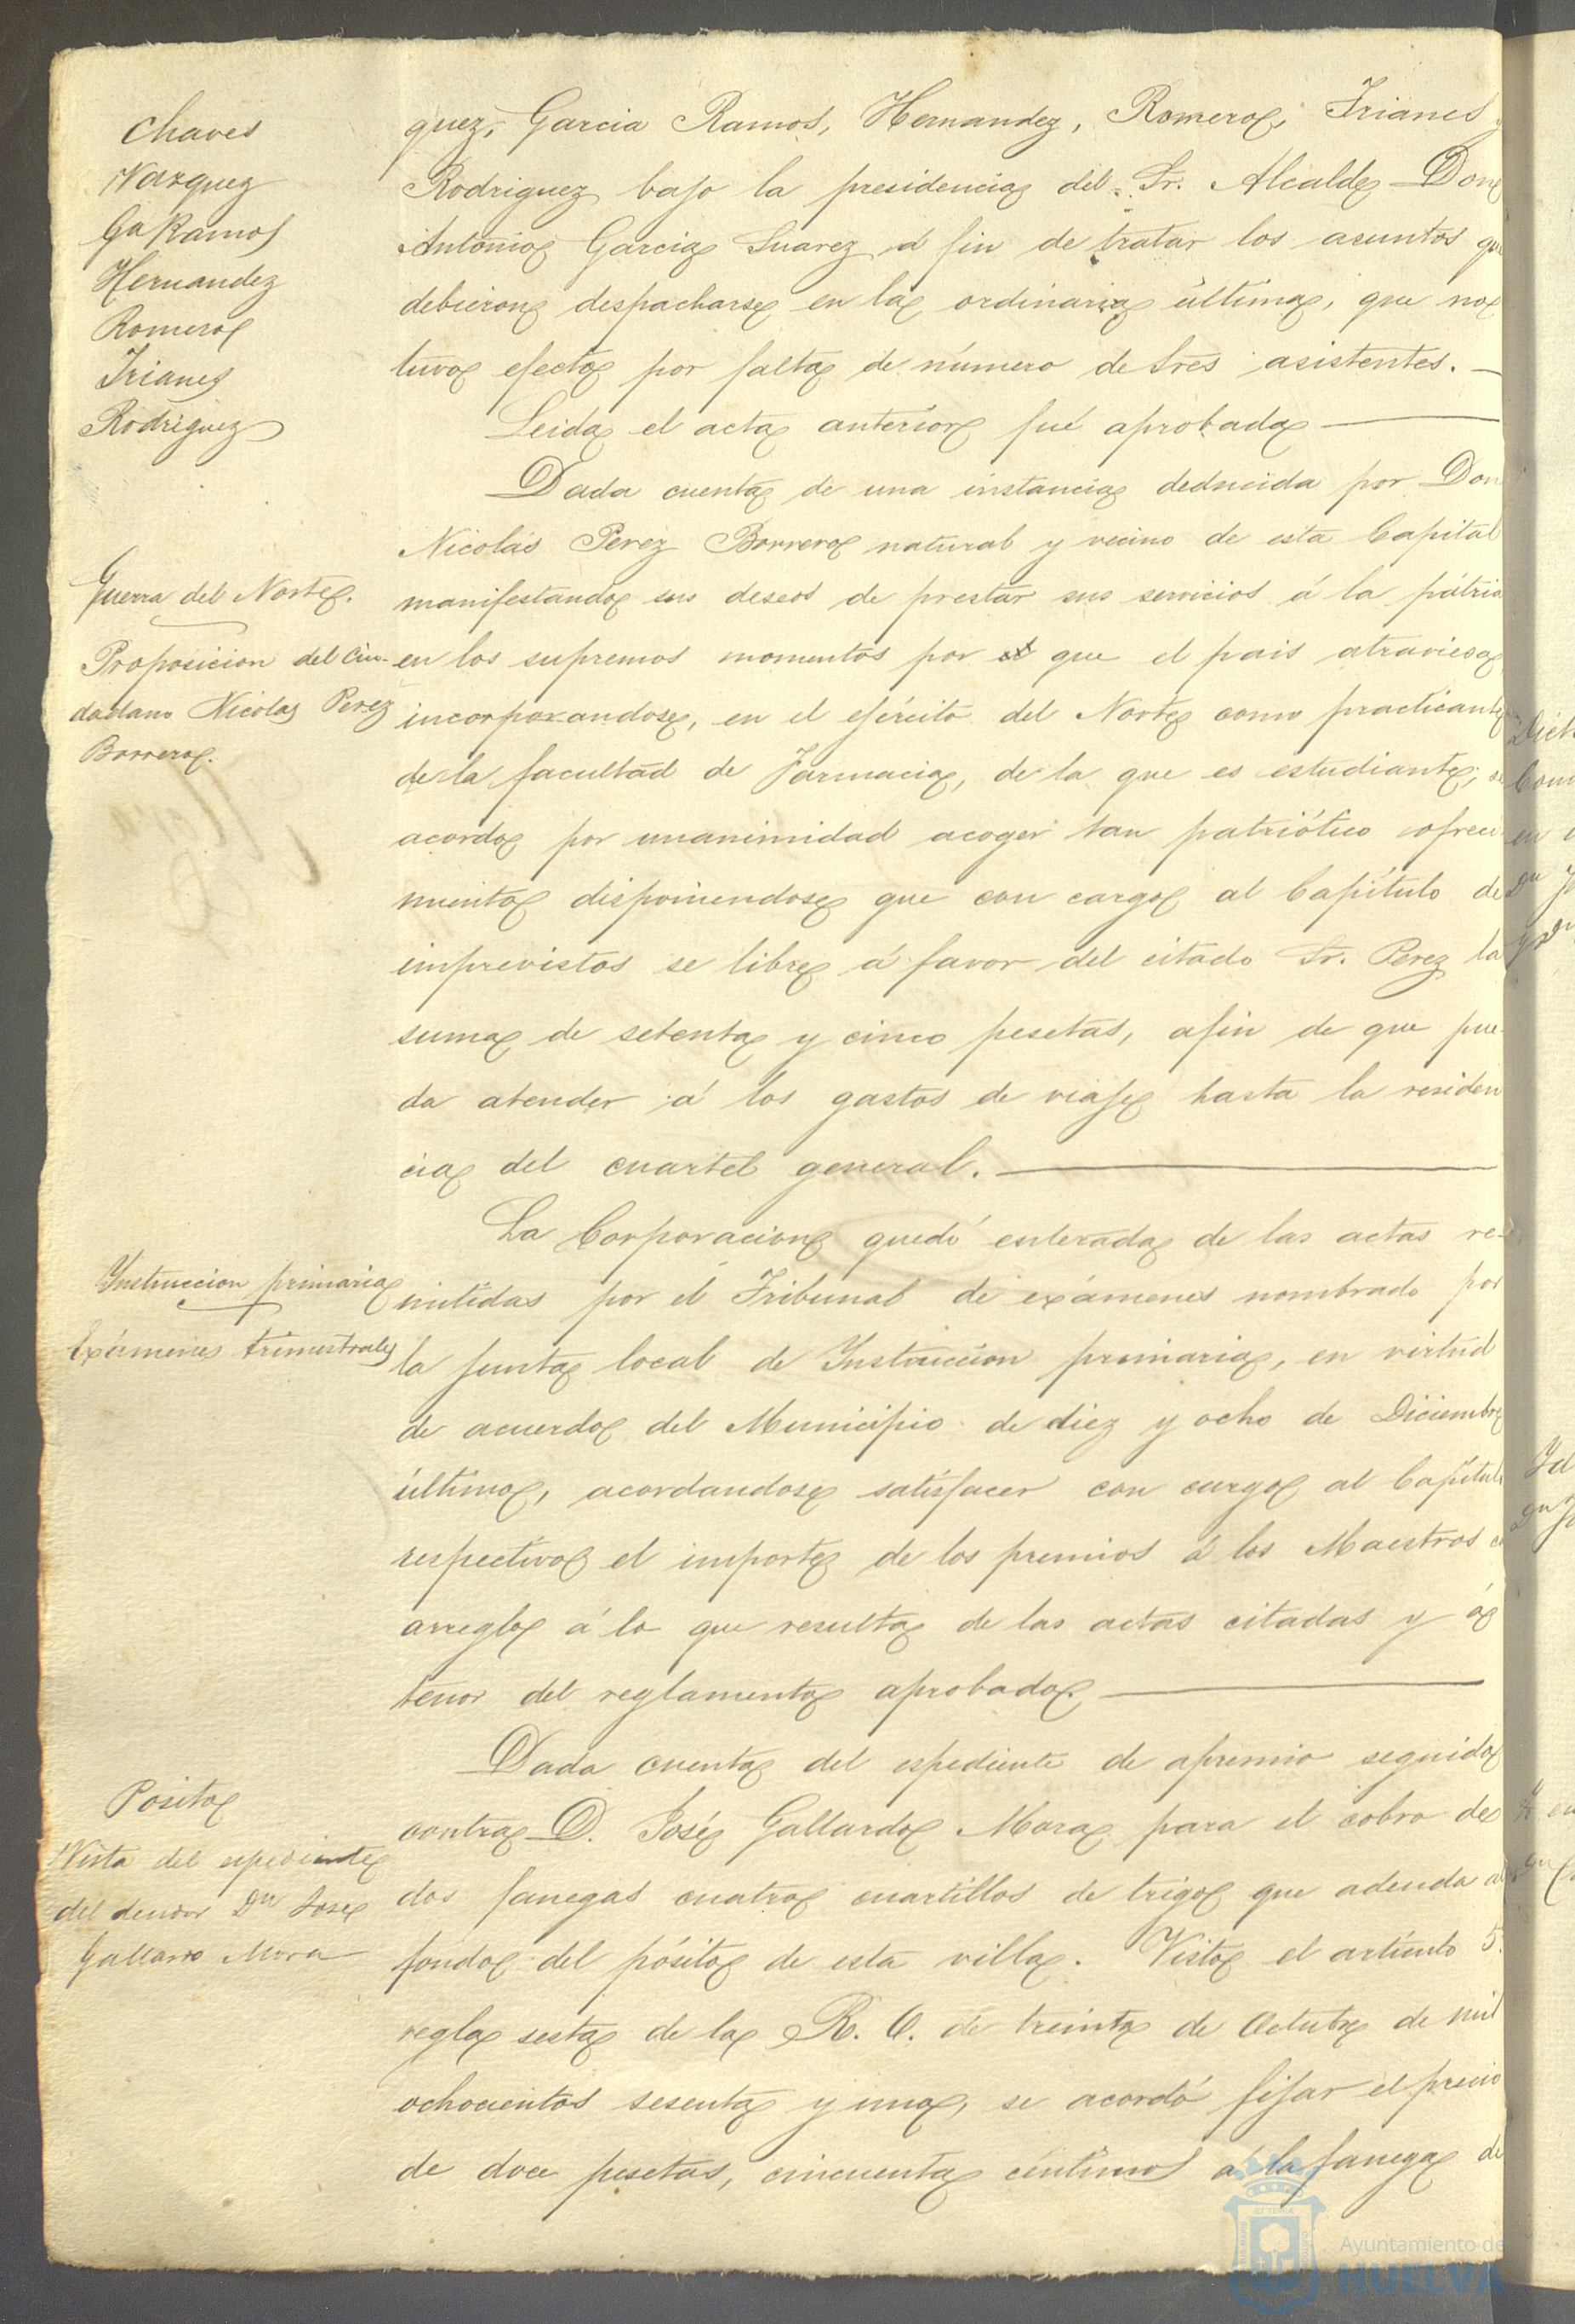 Chaves
Vazquez
Ga Ramos
Hernandez
Romero
Trianes
Rodriguez
quez, Garcia Ramos, Hernandez, Romero, Trianes y
Rodriguez bajo la presidencia del Sr. Alcalde Don
Antonio Garcia Suarez á fin de tratar los asuntos que
debieron despacharse en la ordinaria última, que no
tuvo efecto por falta de número de tres asistentes.
Leida el acta anterior fué aprobada
Dada cuenta de una instancia deducida por Don
Nicolás Perez Borrero natural y vecino de esta Capital
Guerra del Norte.
manifestando sus deseos de prestar sus servicios á la pátria
Proposicion del Ciu-
en los supremos momentos por que el pais atraviesa
dadano Nicolas Perez
incorporandose, en el ejército del Norte como practicante
Borrero.
de la facultad de Farmacia, de la que es estudiante; se
acordo por unanimidad acoger tan patriótico ofreci
miento disponiendose que con cargo al Capítulo de
imprevistos se libre á favor del citado Sr. Perez la
suma de setenta y cinco pesetas, afin de que pue
da atender á los gastos de viaje hasta la residen
cia del cuartel general.
La Corporacion quedó enterada de las actas re-
Instruccion primaria
mitidas por el Tribunal de exámenes nombrado por
Exámenes trimestrales
la junta local de Instruccion primaria, en virtud
de acuerdo del Municipio de diez y ocho de Diciembre
último, acordandose satisfacer con cargo al Capítulo
respectivo el importe de los premios á los Maestros
arreglo á lo que resulta de las actas citadas y á
tenor del reglamento aprobado.
Dada cuenta del espediente de apremio seguido
Posito
contra D. José Gallardo Mora para el cobro de
Vista del espediente
dos fanegas cuatro cuartillos de trigo que adeuda al
del deudor Dn Jose
fondo del pósito de esta villa. Visto el artículo 5.
Gallardo Mora
regla sesta de la R. O. de treinta de Octubre de mil
ochocientos sesenta y uno, se acordó fijar el precio
de doce pesetas, cincuenta céntimos á la fanega de
Ayuntamiento de
HUELVA